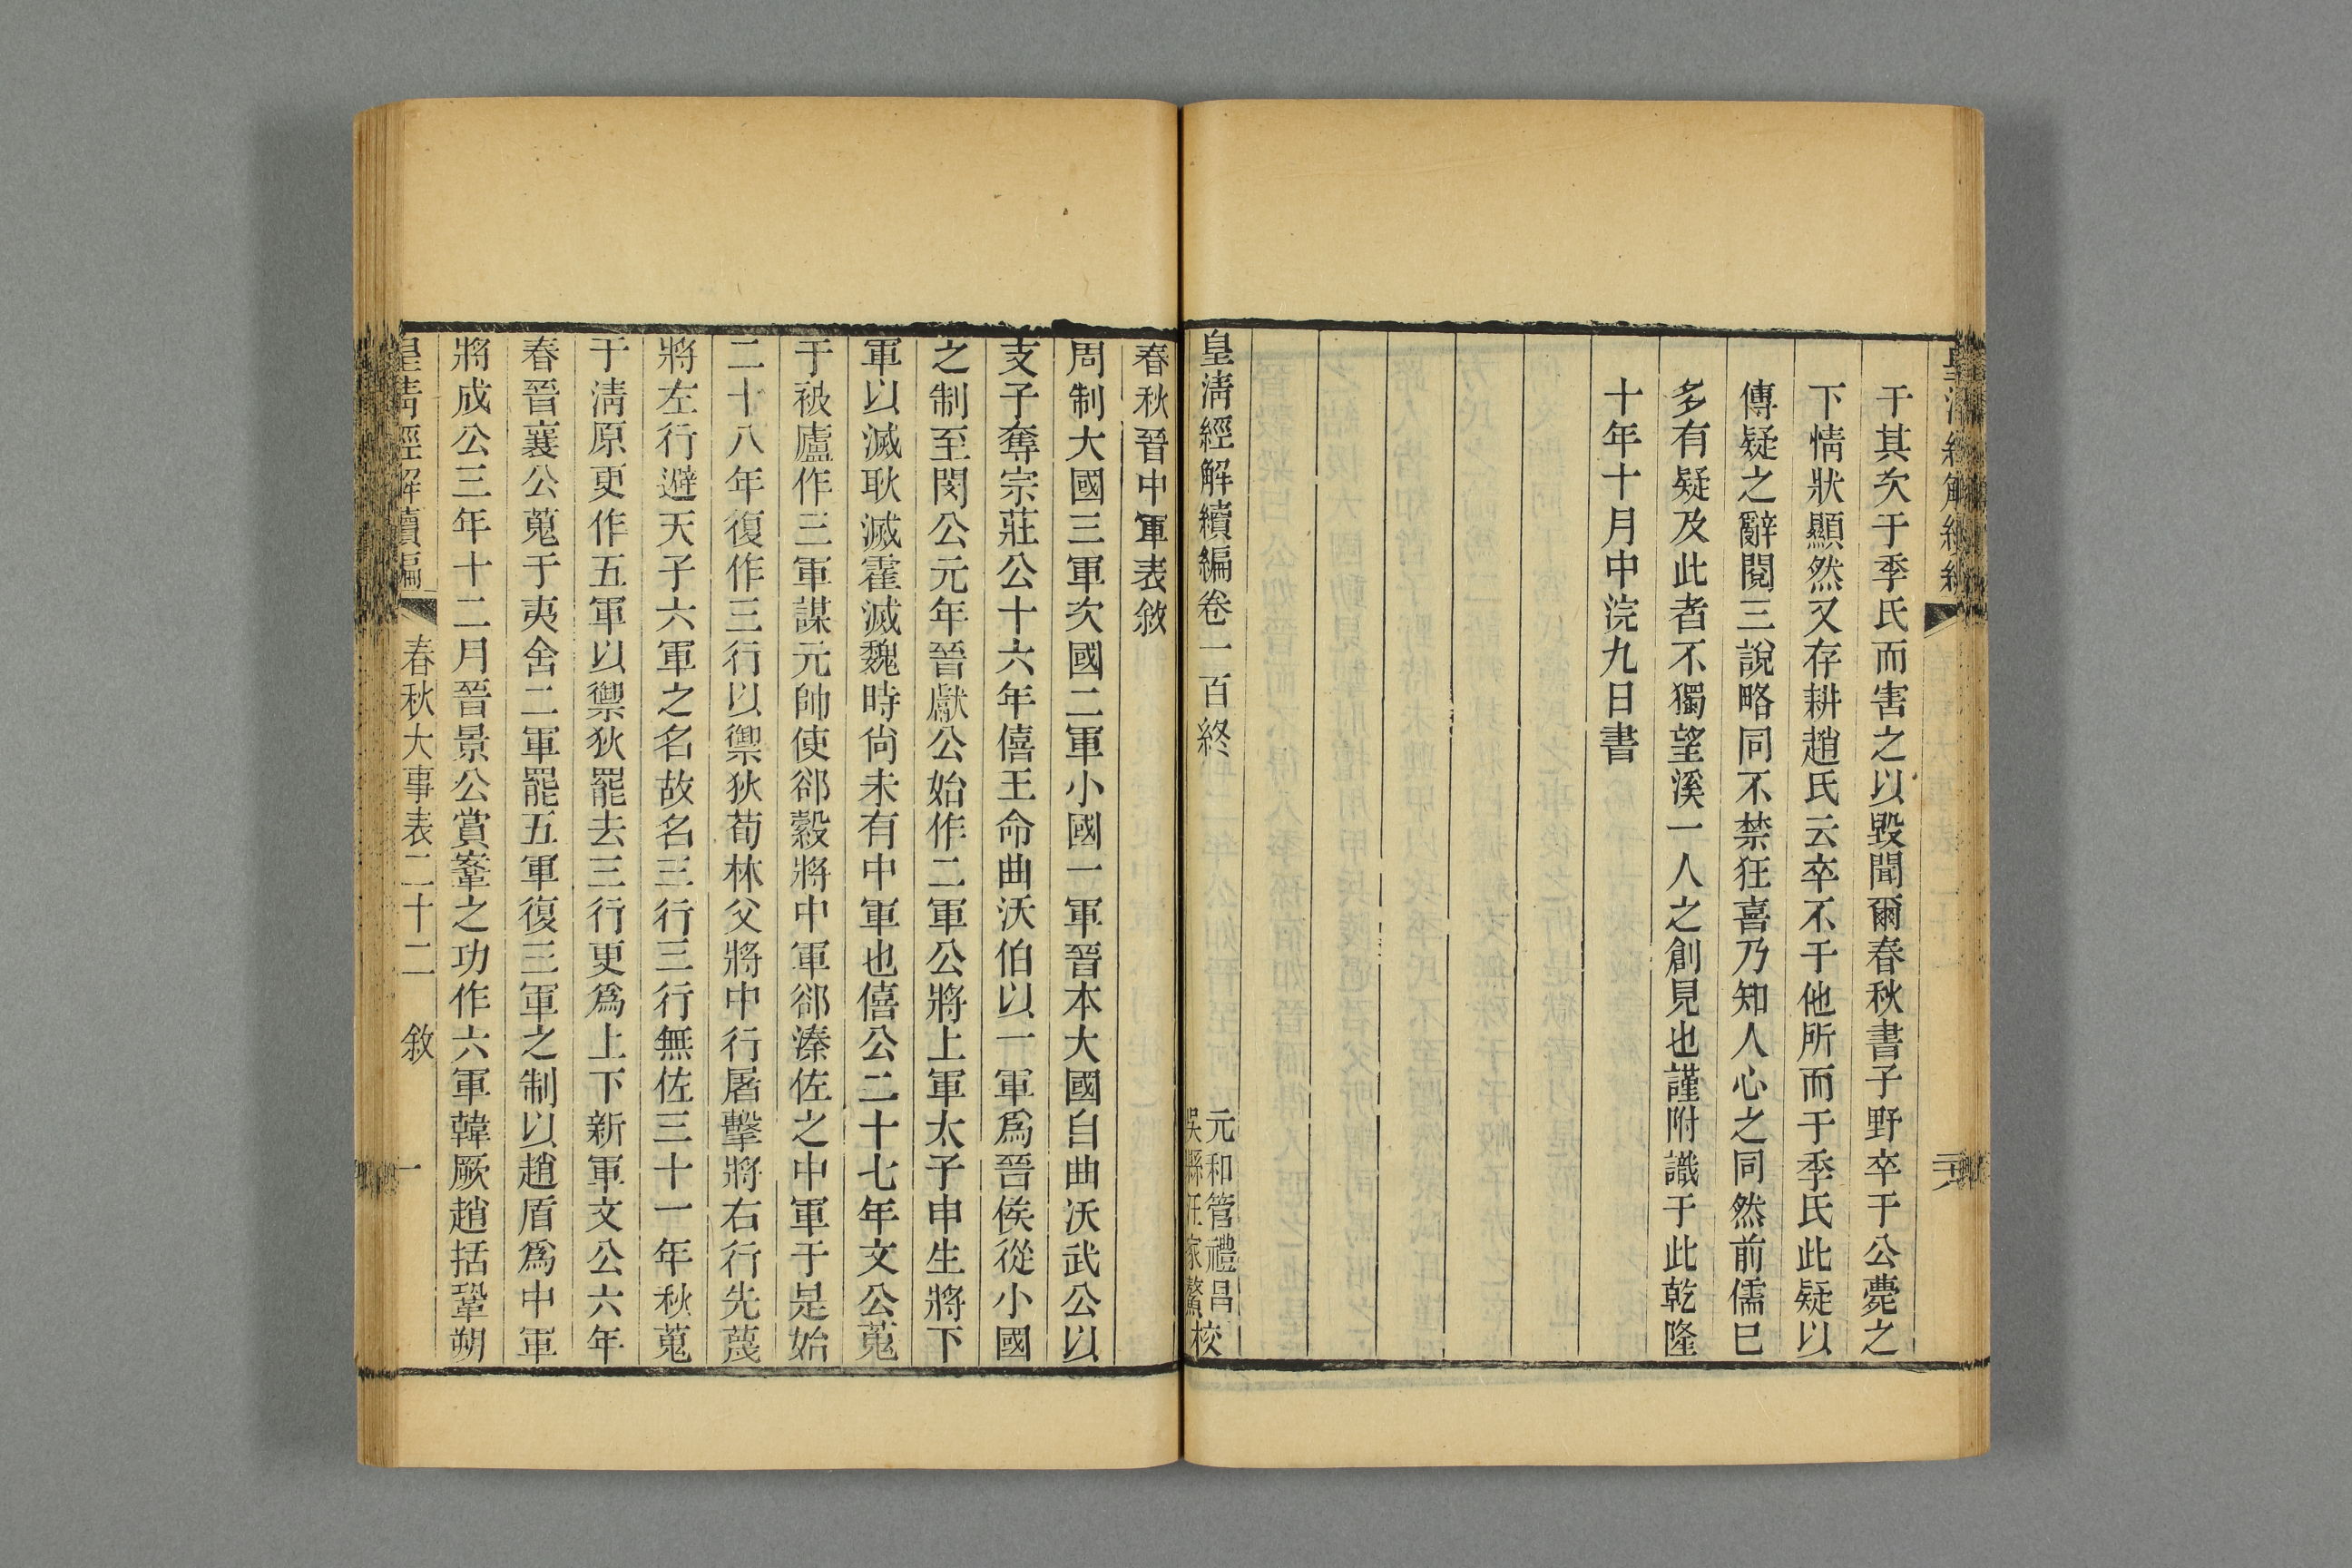 于其次于季氏而害之以毀聞爾春秋書子野卒于公薨之
下情狀顯然又存耕趙氏云卒不于他所而于季氏此疑以
傳疑之辭閱三說略同不禁狂喜乃知人心之同然前儒已
多有疑及此者不獨望溪一人之創見也謹附識于此乾隆
十年十月中浣九日書
皇清經解續編卷一百終
元和管禮昌
吳縣汪家鰲校
春秋晉中軍表敘
周制大國三軍次國二軍小國一軍晉本大國自曲沃武公以
支子奪宗莊公十六年僖王命曲沃伯以一軍爲晉侯從小國
之制至閔公元年晉獻公始作二軍公將上軍太子申生將下
軍以滅耿滅霍滅魏時尙未有中軍也僖公二十七年文公蒐
于被廬作三軍謀元帥使郤縠將中軍郤溱佐之中軍于是始
二十八年復作三行以禦狄荀林父將中行屠擊將右行先蔑
將左行避天子六軍之名故名三行三行無佐三十一年秋蒐
于淸原更作五軍以禦狄罷去三行更爲上下新軍文公六年
春晉襄公蒐于夷舍二軍罷五軍復三軍之制以趙盾爲中軍
將成公三年十二月晉景公賞鞌之功作六軍韓厥趙括鞏朔
皇清經解續編
春秋大事表二十二 敘
一